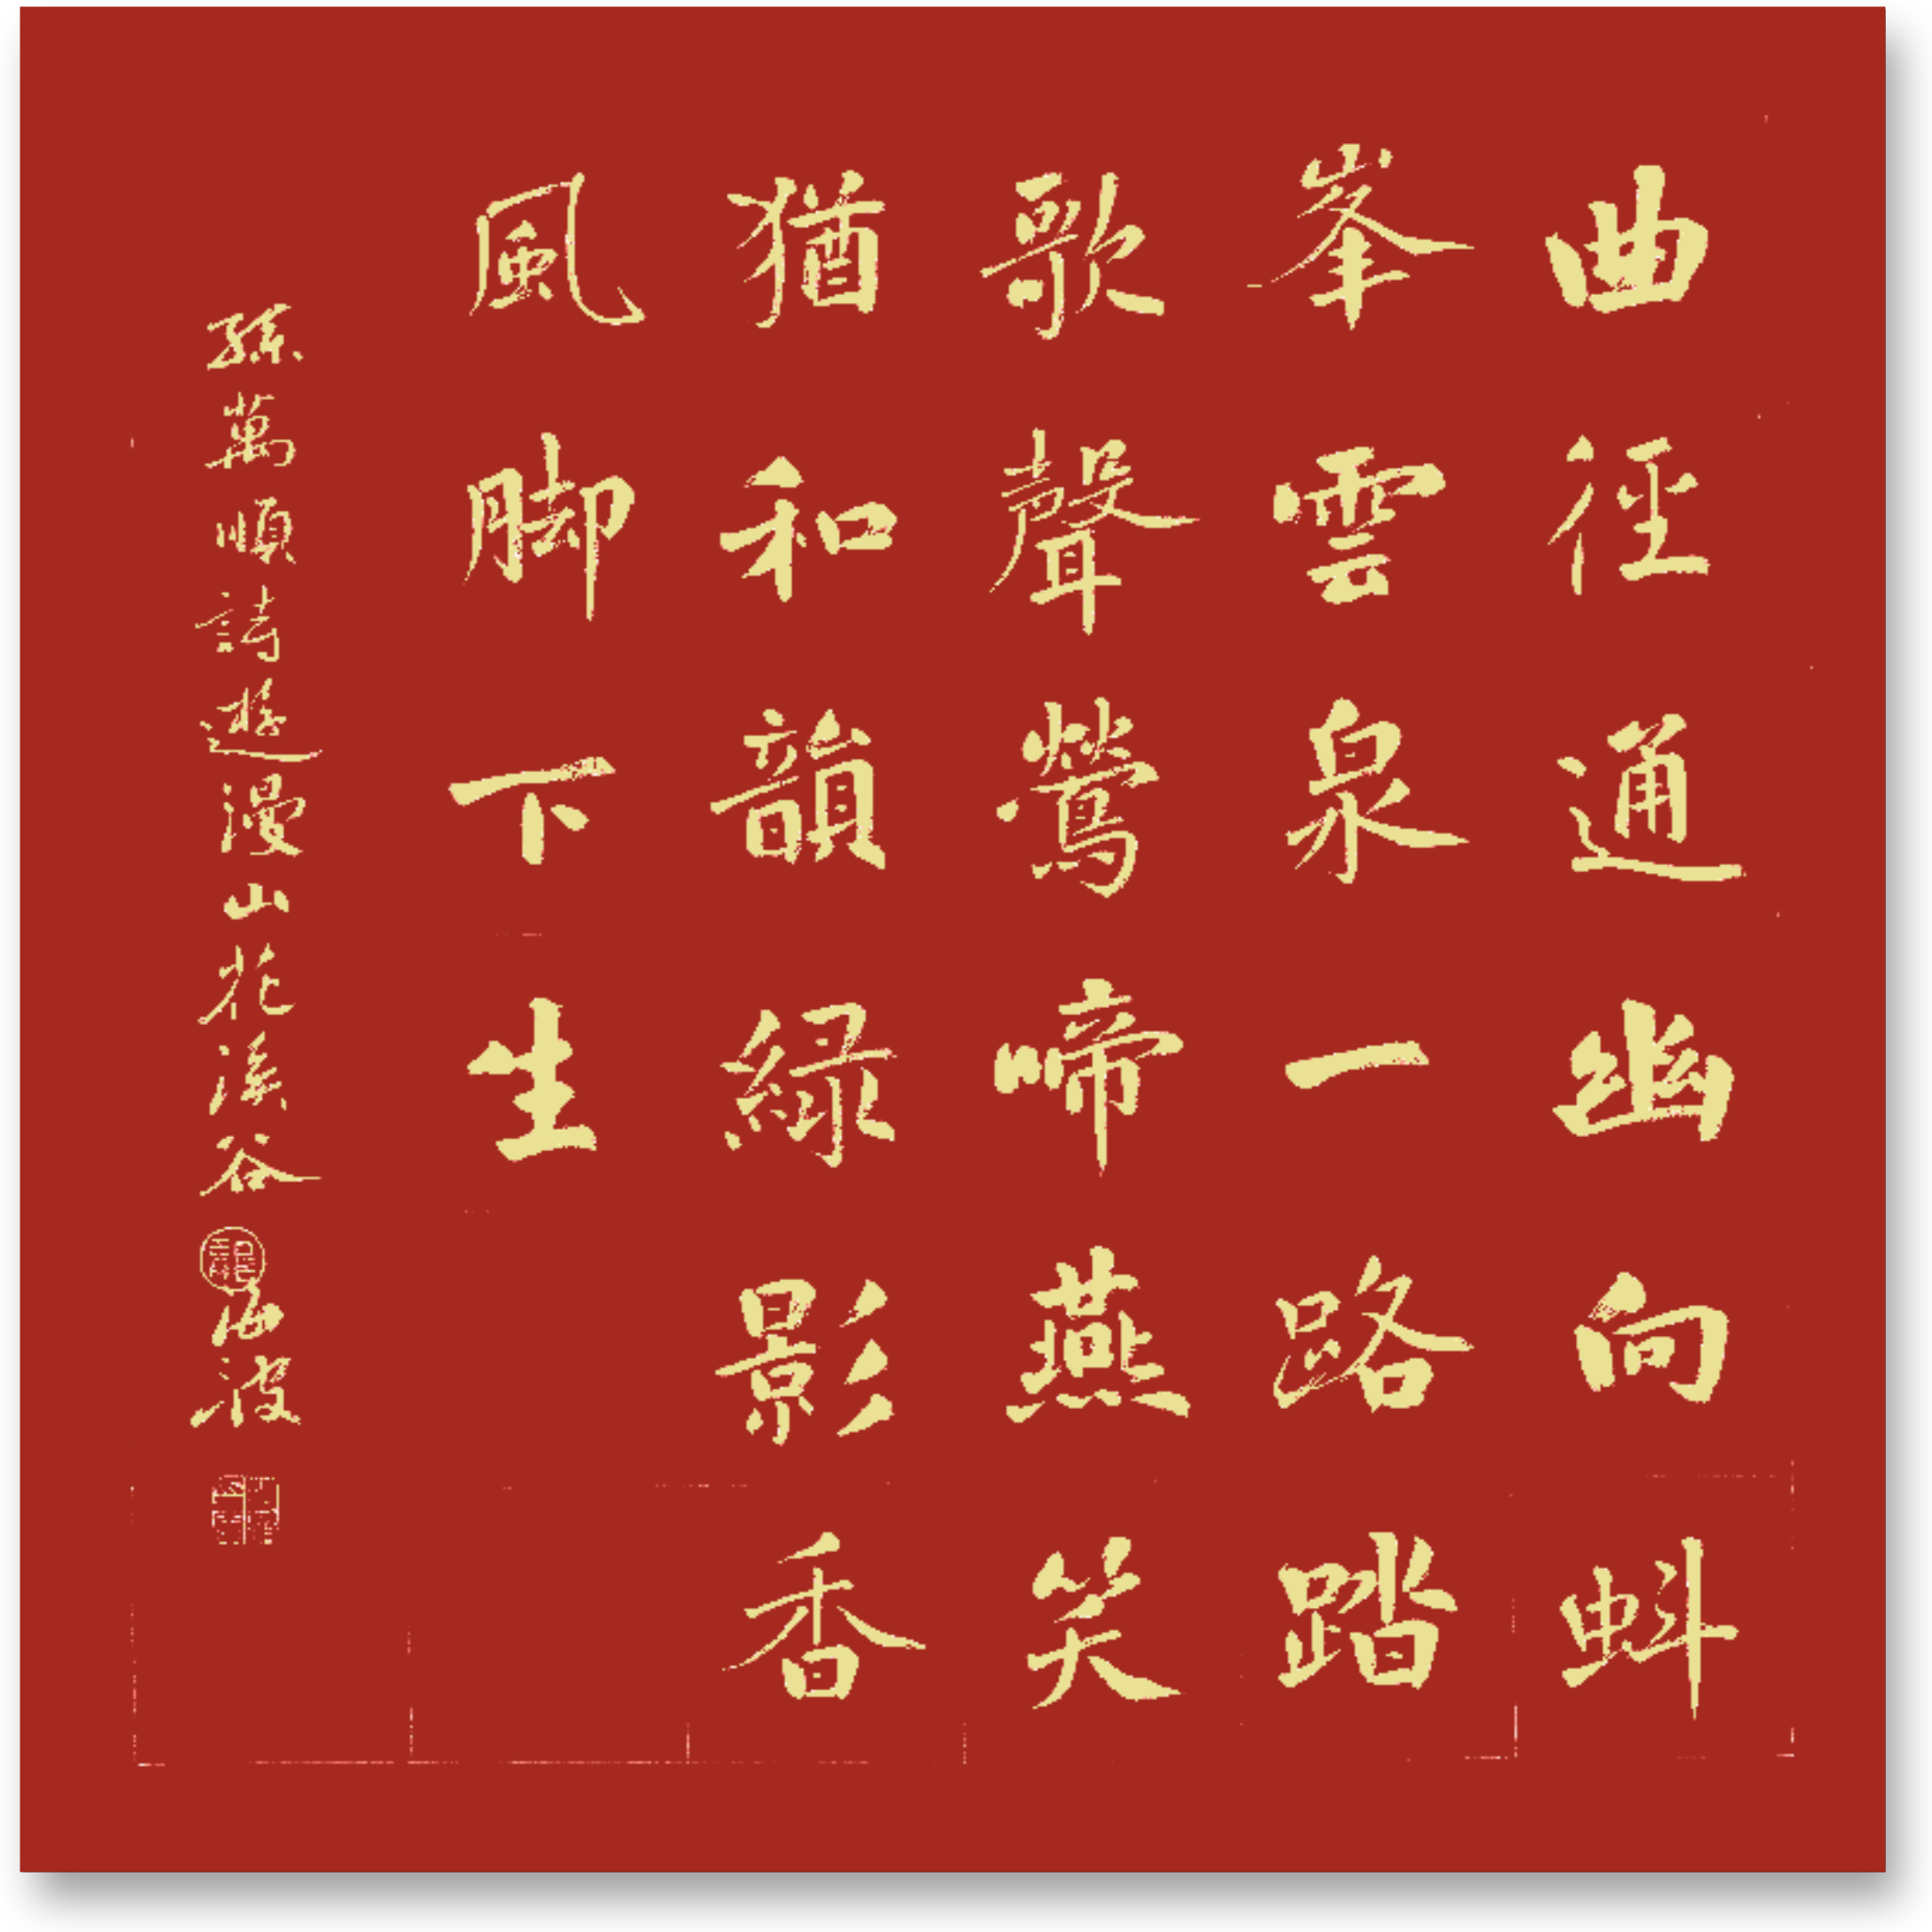 曲徑通幽向蚪
峯雲泉一路踏
歌聲鶯啼燕笑
猶和韻綠影香
風脚下生
孫萬順詩遊漫山花溪谷
海波